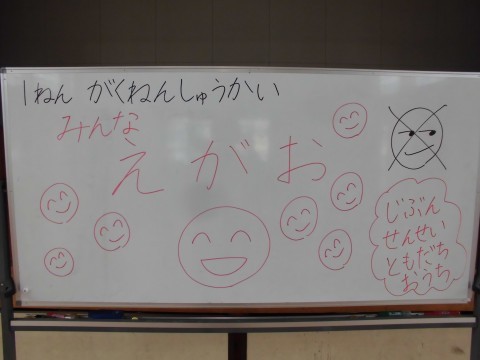 1ねん がくねんしゅうかい
みんな
えがお
じぶん
せんせい
ともだち
おうち